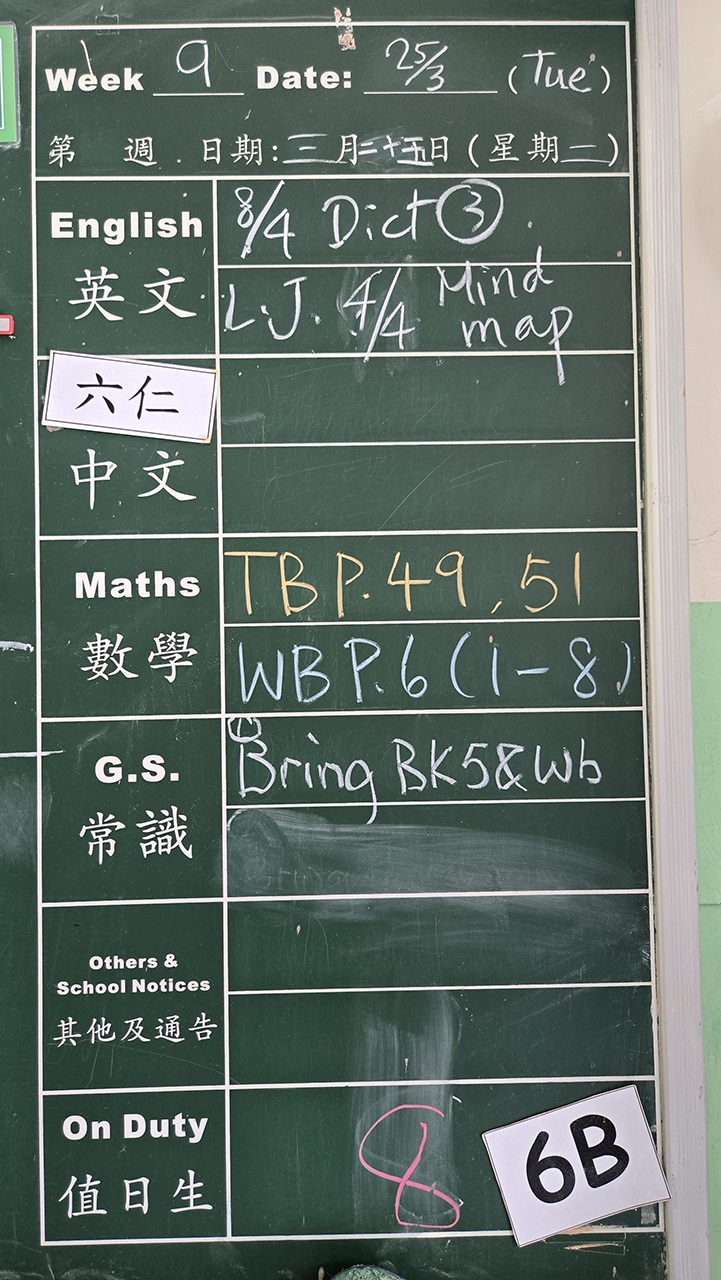 Week 9 Date: 25/3 (Tue)
第 週 . 日期: 三月二十五日 (星期二)
English
英文
8/4 Dict ③.
L.J. 4/4 Mind map
六仁
中文
Maths
數學
TB P.49, 51
WB P.6 (1-8)
G.S.
常識
① Bring BK5&Wb
Others &
School Notices
其他及通告
On Duty
值日生
8
6B